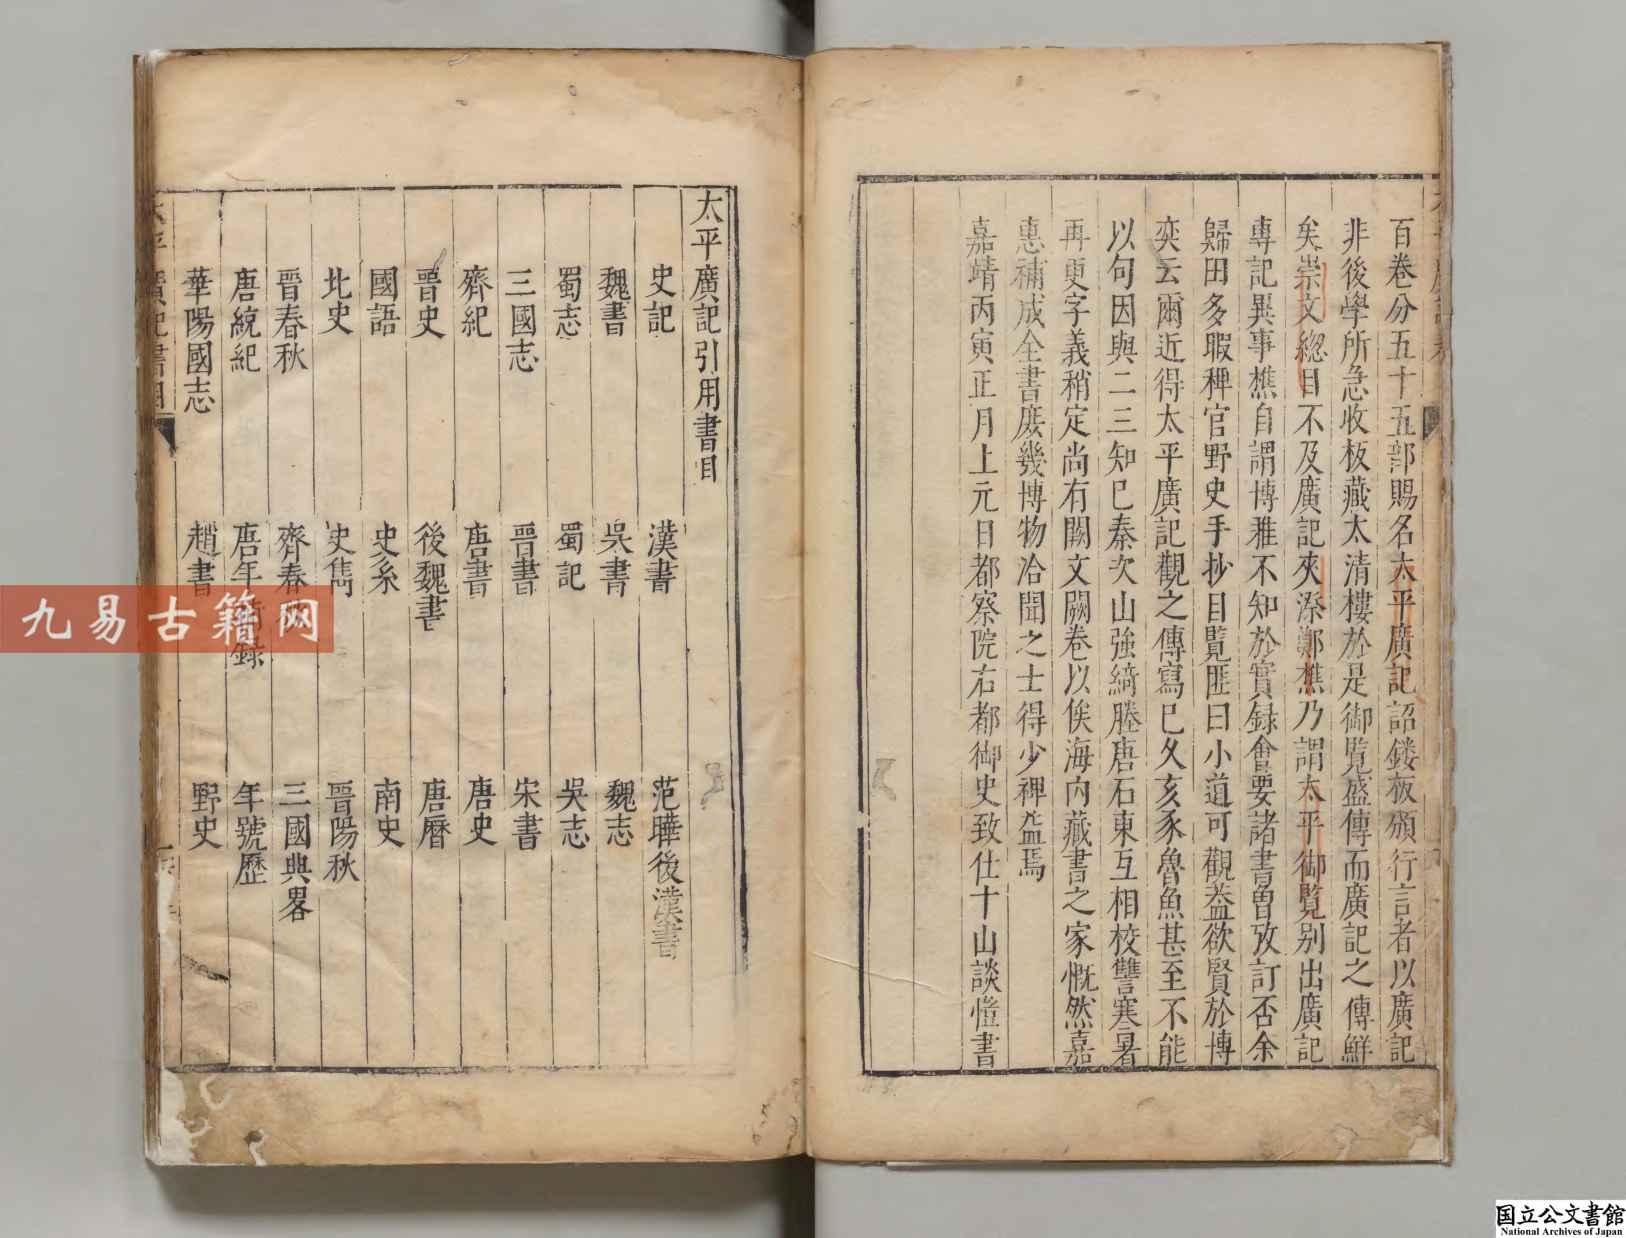 百卷分五十五部賜名太平廣記詔鏤板頒行言者以廣記
非後學所急收板藏太清樓於是御覧盛傳而廣記之傳鮮
矣崇文緫目不及廣記夾漈鄭樵乃謂太平御覧别出廣記
專記異事樵自謂博雅不知於實録會要諸書曽攷訂否余
歸田多暇稗官野史手抄目覧匪曰小道可觀葢欲賢於博
奕云爾近得太平廣記觀之傳寫已久亥豕魯魚甚至不能
以句因與二三知已秦次山強綺塍唐石東互相校讐寒暑
再更字義稍定尚有闕文闕卷以俟海内藏書之家慨然嘉
惠補成全書庶幾博物洽聞之士得少裨益焉
嘉靖丙寅正月上元日都察院右都御史致仕十山談愷書
太平廣記引用書目
史記 漢書 范曄後漢書
魏書 吳書 魏志
蜀志 蜀記 吳志
三國志 晉書 宋書
齊紀 唐書 唐史
晉史 後魏書 唐曆
國語 史系 南史
北史 史雋 晉陽秋
晉春秋 齊春秋 三國典畧
唐統紀 唐年補録 年號歷
華陽國志 趙書 野史
太平廣記書目
九易古籍网
国立公文書館
National Archives of Japan